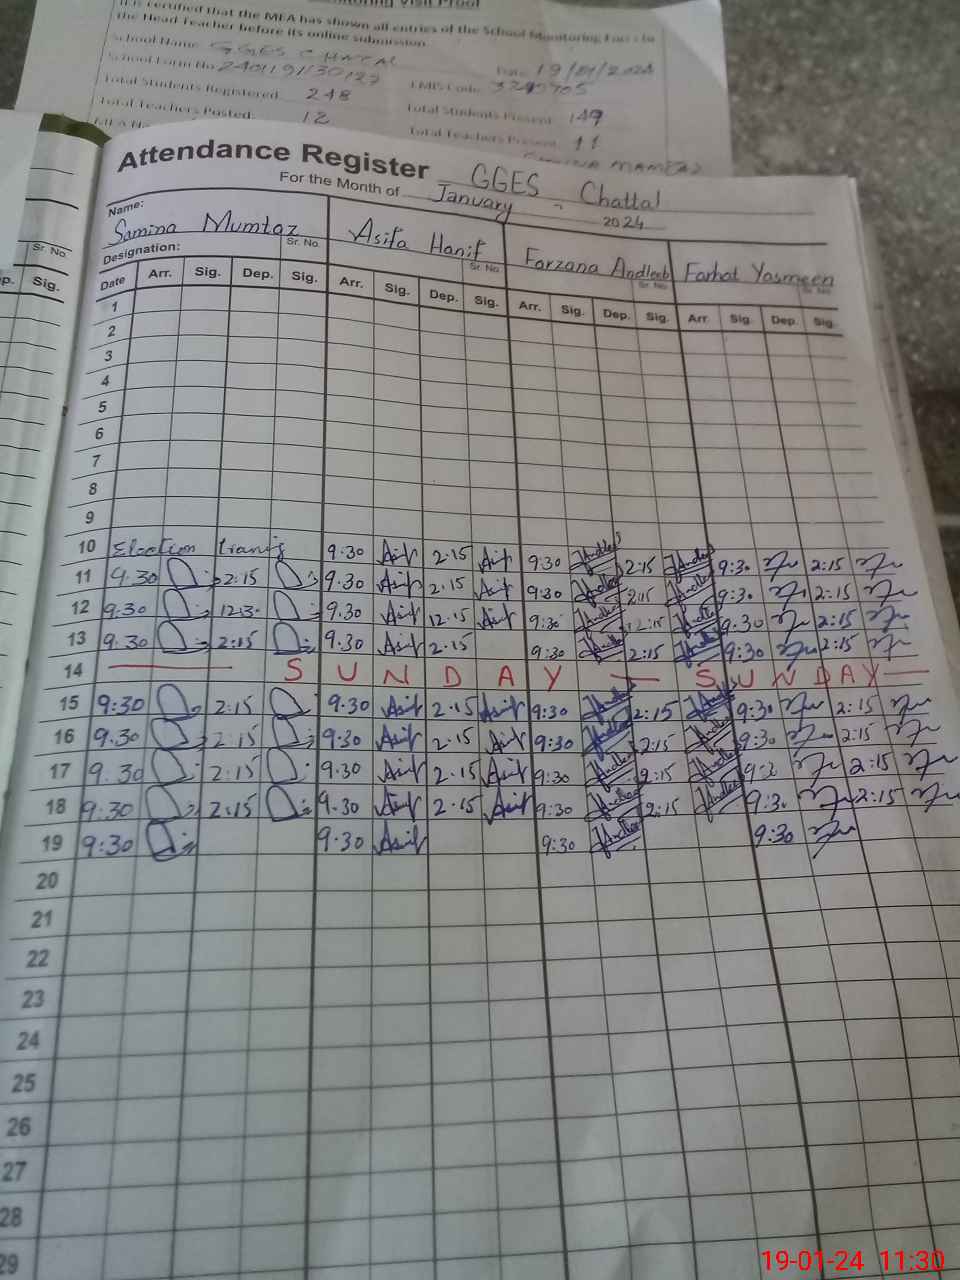 Monitoring Visit Proof
It is certified that the MEA has shown all entries of the School Monitoring Form to
the Head Teacher before its online submission.
School Name: GGES CHATTAL
School Form No. Date: 19/01/2024
EMIS Code:
Total Students Registered: 248 Total Students Present: 149
Total Teachers Posted: 12 Total Teachers Present: 11
MEA SAMINA MAMTAZ
Attendance Register GGES - Chattal
For the Month of January 2024
Name: Samina Mumtaz Asifa Hanif Farzana Andleeb Farhat Yasmeen
Designation: Sr. No. Sr. No. Sr. No. Sr. No.
Date Arr. Sig. Dep. Sig. Arr. Sig. Dep. Sig. Arr. Sig. Dep. Sig. Arr. Sig. Dep. Sig.
1
2
3
4
5
6
7
8
9
10 Election 9.30 Asif 2.15 Asif 9:30 Andleeb 2:15 Andleeb 9:30 2:15
11 9.30 2:15 9.30 Asif 2.15 Asif 9:30 Andleeb 2:15 Andleeb 9:30 2:15
12 9:30 12:30 9.30 Asif 12.15 Asif 9:30 Andleeb 12:15 Andleeb 9:30 2:15
13 9.30 2:15 9.30 Asif 2.15 9:30 Andleeb 2:15 Andleeb 9:30 2:15
14 — S U N D A Y — S U N D A Y —
15 9:30 2:15 9.30 Asif 2.15 Asif 9:30 Andleeb 2:15 Andleeb 9:30 2:15
16 9.30 2:15 9:30 Asif 2.15 Asif 9:30 Andleeb 2:15 Andleeb 9:30 2:15
17 9.30 2:15 9:30 Asif 2.15 Asif 9:30 Andleeb 2:15 Andleeb 9:30 2:15
18 9:30 2:15 9.30 Asif 2.15 Asif 9:30 Andleeb 2:15 Andleeb 9:30 2:15
19 9:30 9:30 Asif 9:30 Andleeb 9:30
20
21
22
23
24
25
26
27
28
29
Sr. No.
Sig.
19-01-24 11:30